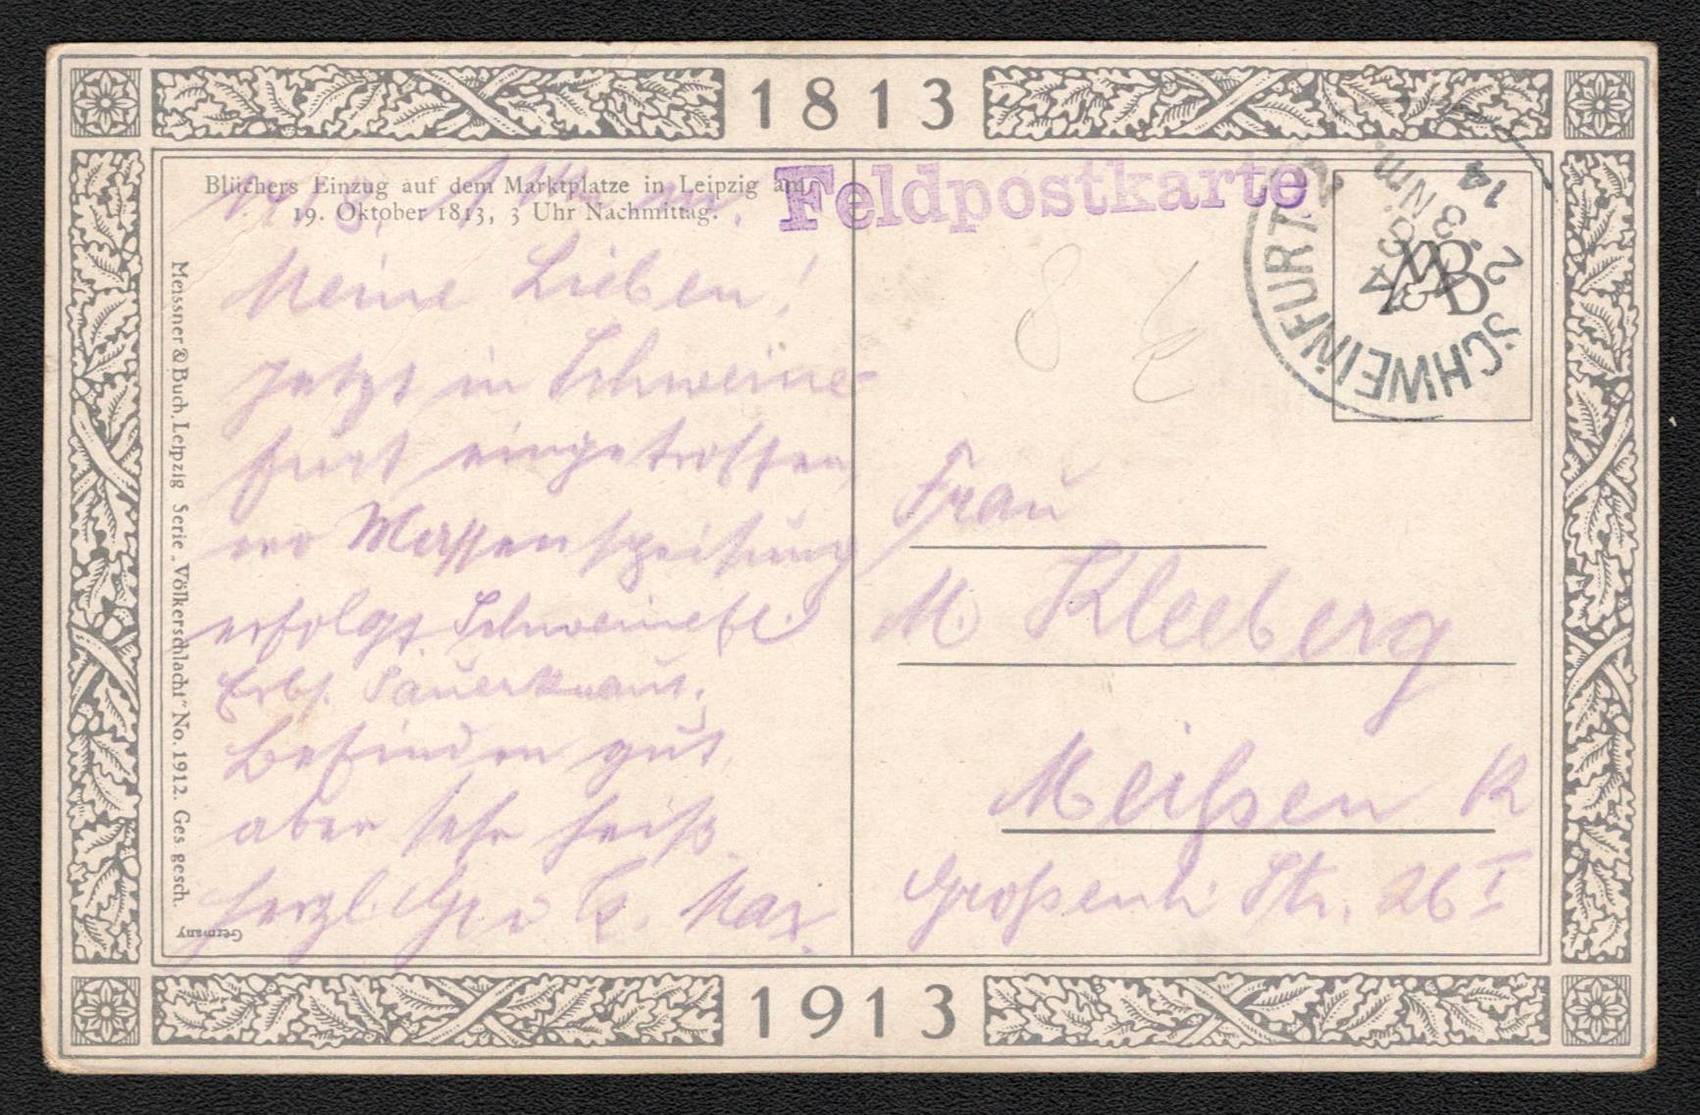 1813
Blüchers Einzug auf dem Marktplatze in Leipzig am
19. Oktober 1813, 3 Uhr Nachmittag.
Feldpostkarte
SCHWEINFURT 2
2. AUG.
3 Nm.
14
M&B
Meissner & Buch, Leipzig Serie „Völkerschlacht" No. 1912. Ges gesch.
Germany
Meine Lieben!
Jetzt in Schweine-
furt eingetroffen,
wo Massenspeisung
erfolgt. Schweinefl.
Erbs. Sauerkraut.
Befinden gut,
aber sehr heiß.
Herzl. Max.
Frau
M. Kleeberg
Meißen R
Großenh. Str. 26 I
1913